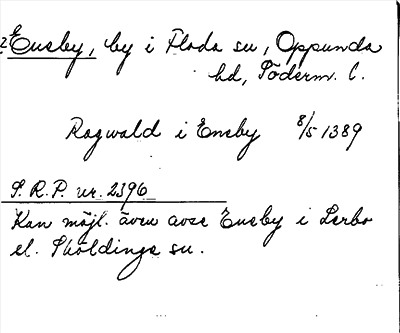 2 Eneby, by i Floda sn, Oppunda
hd, Söderm. l.
Ragwald i Eneby 8/5 1389
S.R.P. nr. 2396
Kan möjl. även avse Eneby i Lerbo
el. Sköldinge sn.